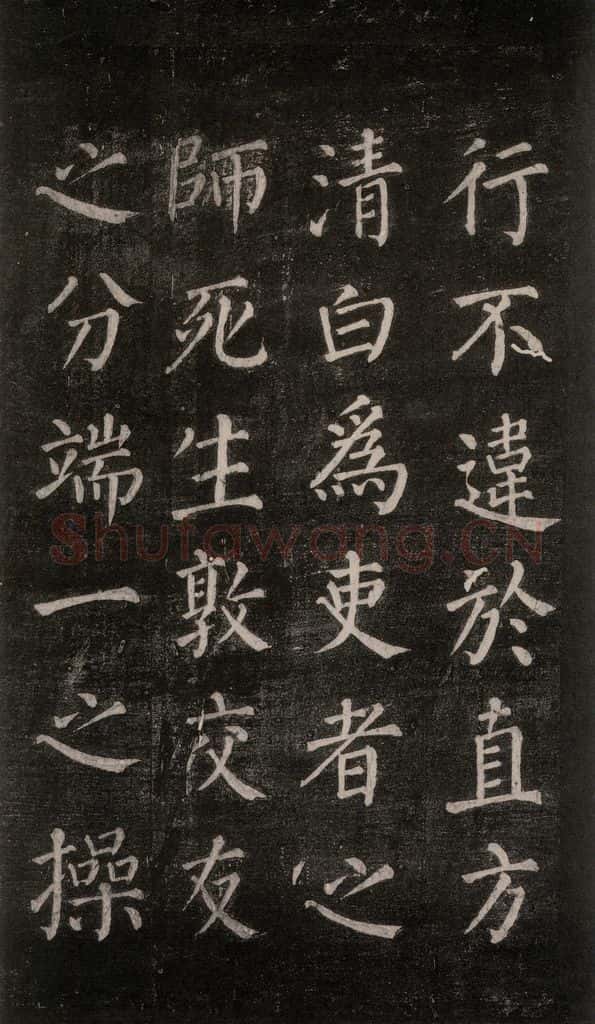 行不違於直方
清白為吏者之
師死生敦交友
之分端一之操
Shufawang.CN